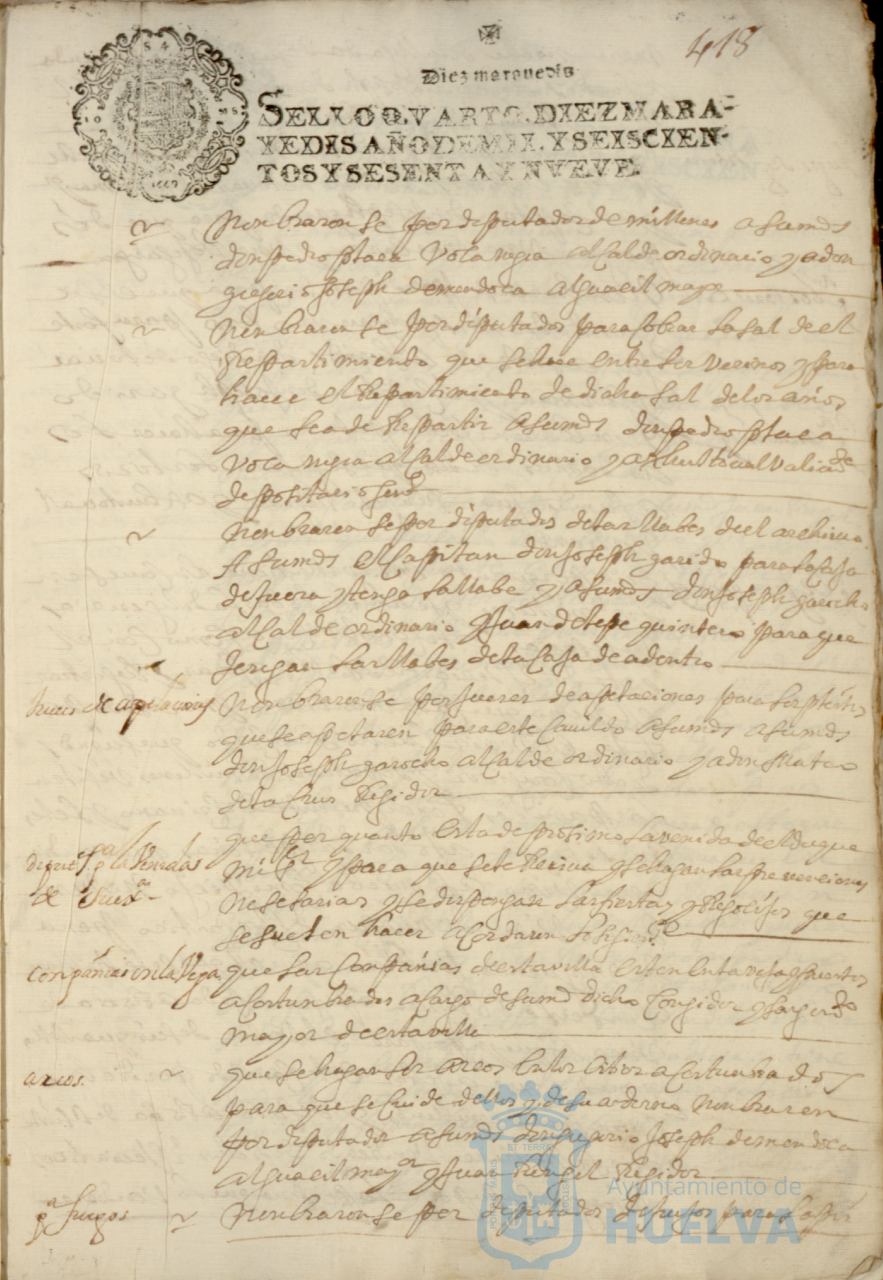 418
Diez maravedis
SELLO QVARTO, DIEZ MARA-
VEDIS AÑO DE MIL Y SEISCIEN-
TOS Y SESENTA Y NVEVE.
Nonbraronse por diputador de millones a sumd
don pedro alcalde ordinario y a don
gregorio Joseph de mendoca alguacil mayr
Nonbraronse por diputados para cobrar la sal de el
Repartimiento que se hace entre los vecinos y para
hacer el Repartimiento de dicha sal de los años
que sea de Repartir a sumd don pedro
alcalde ordinario y a
depositario
Nonbraronse por diputados de las llabes de el archivo
A sumd el Capitan don Joseph para la caja
de fuera y tenga la llabe y a sumd don Joseph garocho
alcalde ordinario y Juan de lepe quintero para que
tengan las llabes de la caja de adentro
Jueces de apelaciones
Nonbraronse por Jueces de apelaciones para los pleitos
que se apelaren para este Cavildo a sumd a sumd
don Joseph garocho alcalde ordinario y a don Mateo
de la Crus Regidor
que por quanto esta de prosimo la venida de el Duque
mi sr y para que se le Reciva y se hagan las prevenciones
nesesarias y se dispongan las fiestas y Regosijos que
se suelen hacer acordaron lo siguiente
conpañias en la Vega
que las Conpañias de esta villa esten en la vega y puertos
acostunbrados a cargo de sumd dicho Corregidor y sargto
mayor de esta villa
arcos.
que se hagan los arcos en los sitios acostunbrados
para que se cuide dellos y de su adorno nonbraron
por diputados a sumd don gregorio Joseph de mendoca
alguacil mayr y Juan Rangel Regidor
pa fuegos
Nonbraronse por diputados de fuegos para
Ayuntamiento de
HUELVA